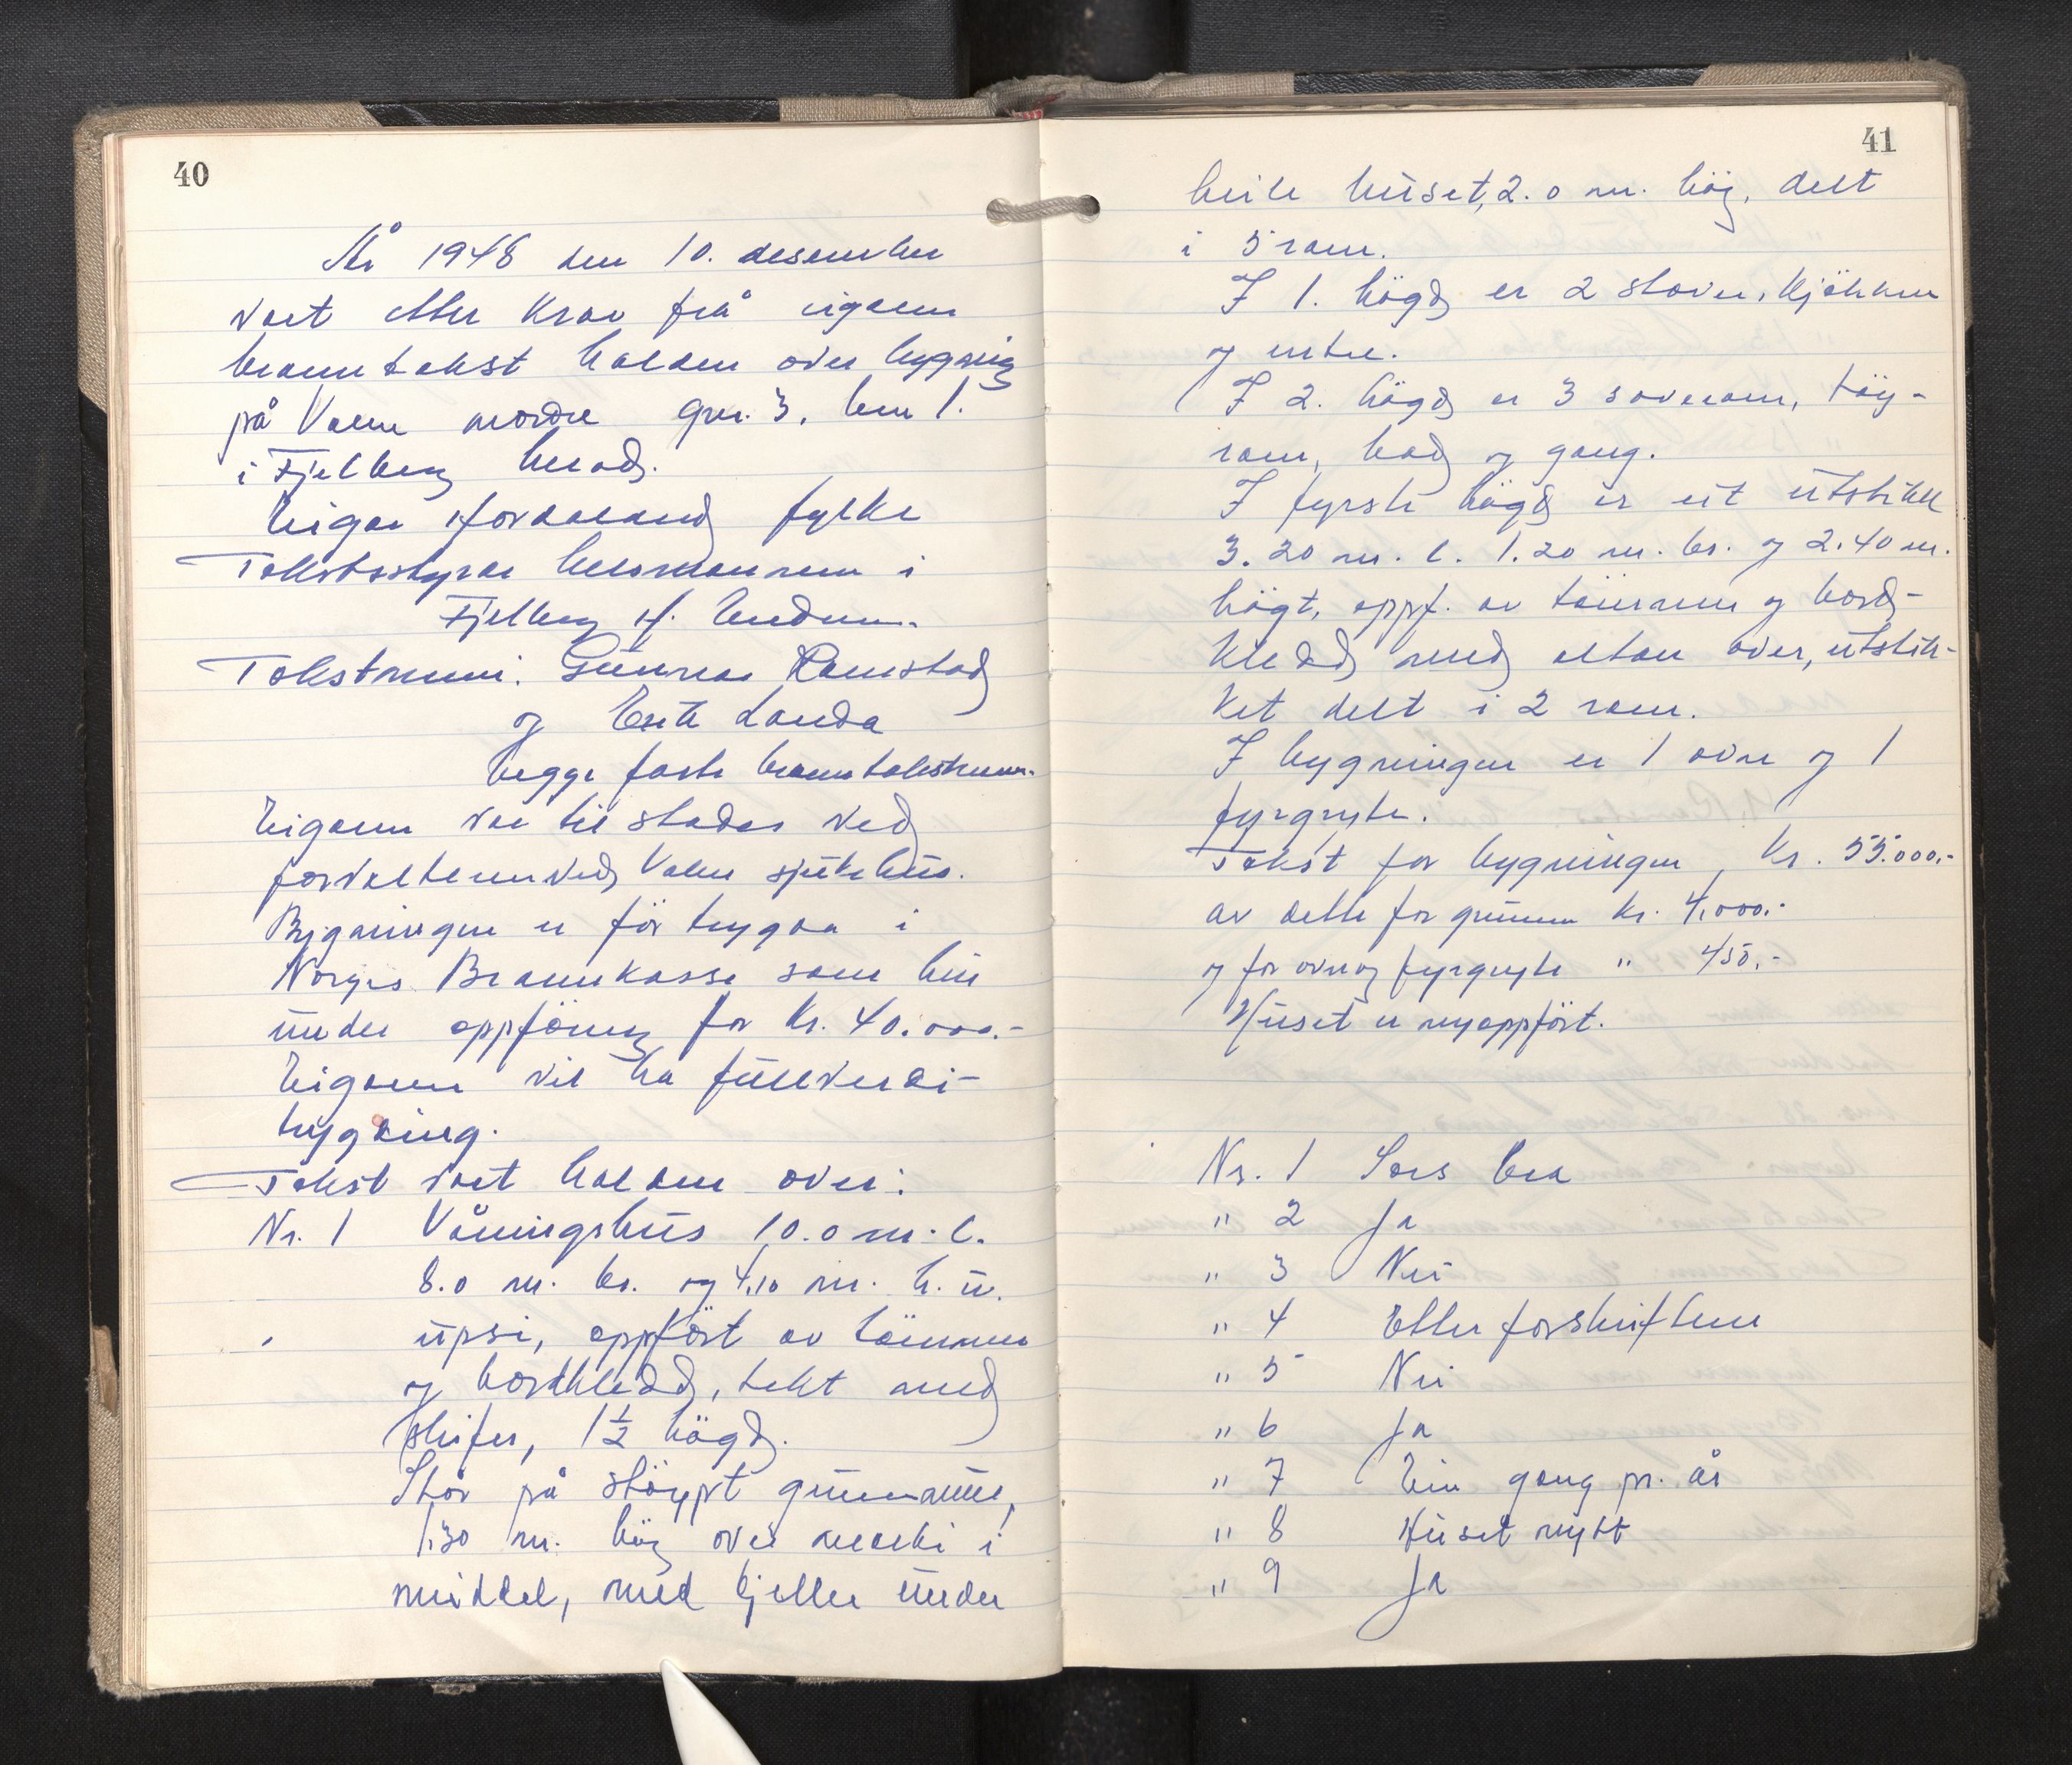 40
År 1948 den 10. desember
vart etter krav frå eigaren
branntakst halden over bygning
på Valen nordre gnr. 3, bnr 1.
i Fjelberg herad.
Eigar Hordaland fylke
Takstsstyrar lensmannen i
Fjelberg H. Enduren.
Takstmenn: Gunnar Ramstad
og Erik Landa
begge faste branntakstmenn.
Eigaren var til stades ved
forvalteren ved Valen sjukehus.
Bygningen er för trygda i
Norges Brannkasse som hus
under oppföring for kr. 40.000.-
Eigaren vil ha fullverdi-
trygding.
Takst vart halden over:
Nr. 1 Våningshus 10.0 m. l.
8.0 m. br. og 4,10 m. h. u.
upsi, oppfört av tömmer
og bordkledd, tekt med
skifer, 1½ högd.
Står på stöypt grunnmur,
1,30 m. hög over marki i
middel, med kjeller under
41
heile huset, 2.0 m. hög, delt
i 5 rom.
I 1. högd er 2 stover, kjökken
og entre.
I 2. högd er 3 soverom, töy-
rom, bad og gang.
I fyrste högd er eit utstikk
3.20 m. l. 1.20 m. br. og 2.40 m.
högt, oppf. av tömmer og bord-
kledd med altan over, utstik-
ket delt i 2 rom.
I bygningen er 1 ovn og 1
fyrgryte.
Takst for bygningen kr. 55.000.-
av dette for grunnm kr. 4.000.-
og for ovn og fyrgryte " 450.-
Huset er nyoppfört.
Nr. 1 Sers bra
" 2 Ja
" 3 Nei
" 4 Etter forskriftene
" 5 Nei
" 6 Ja
" 7 Ein gong pr. år
" 8 Huset nytt
" 9 Ja